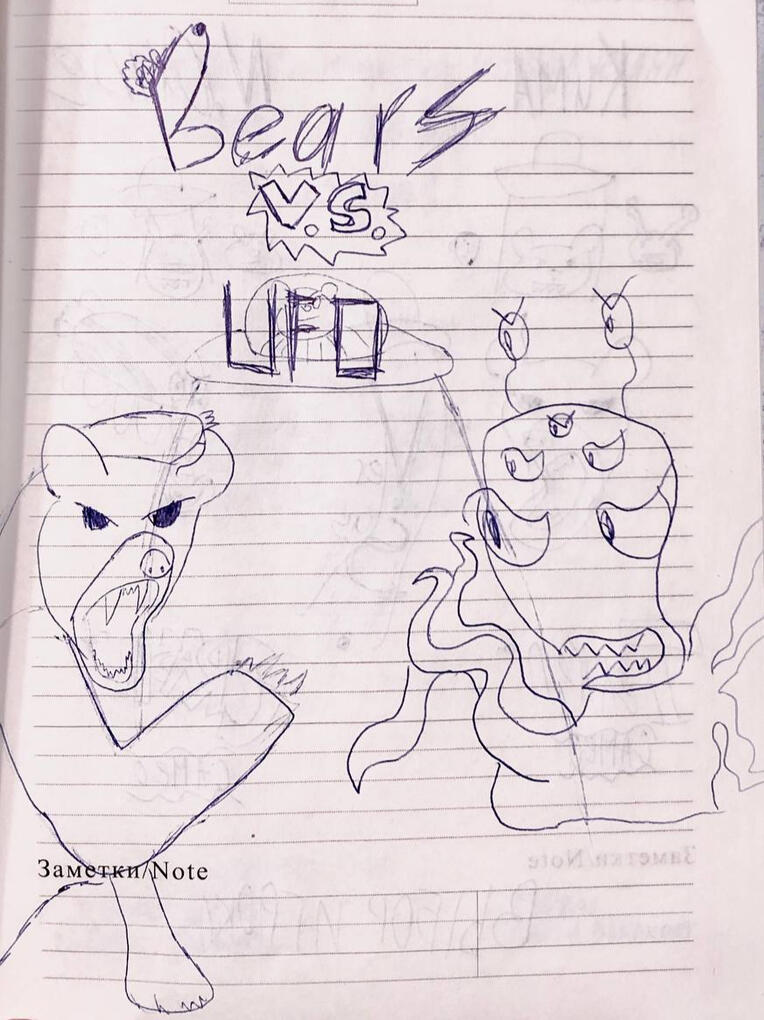 Bears
V.S.
UFO
Заметки/Note